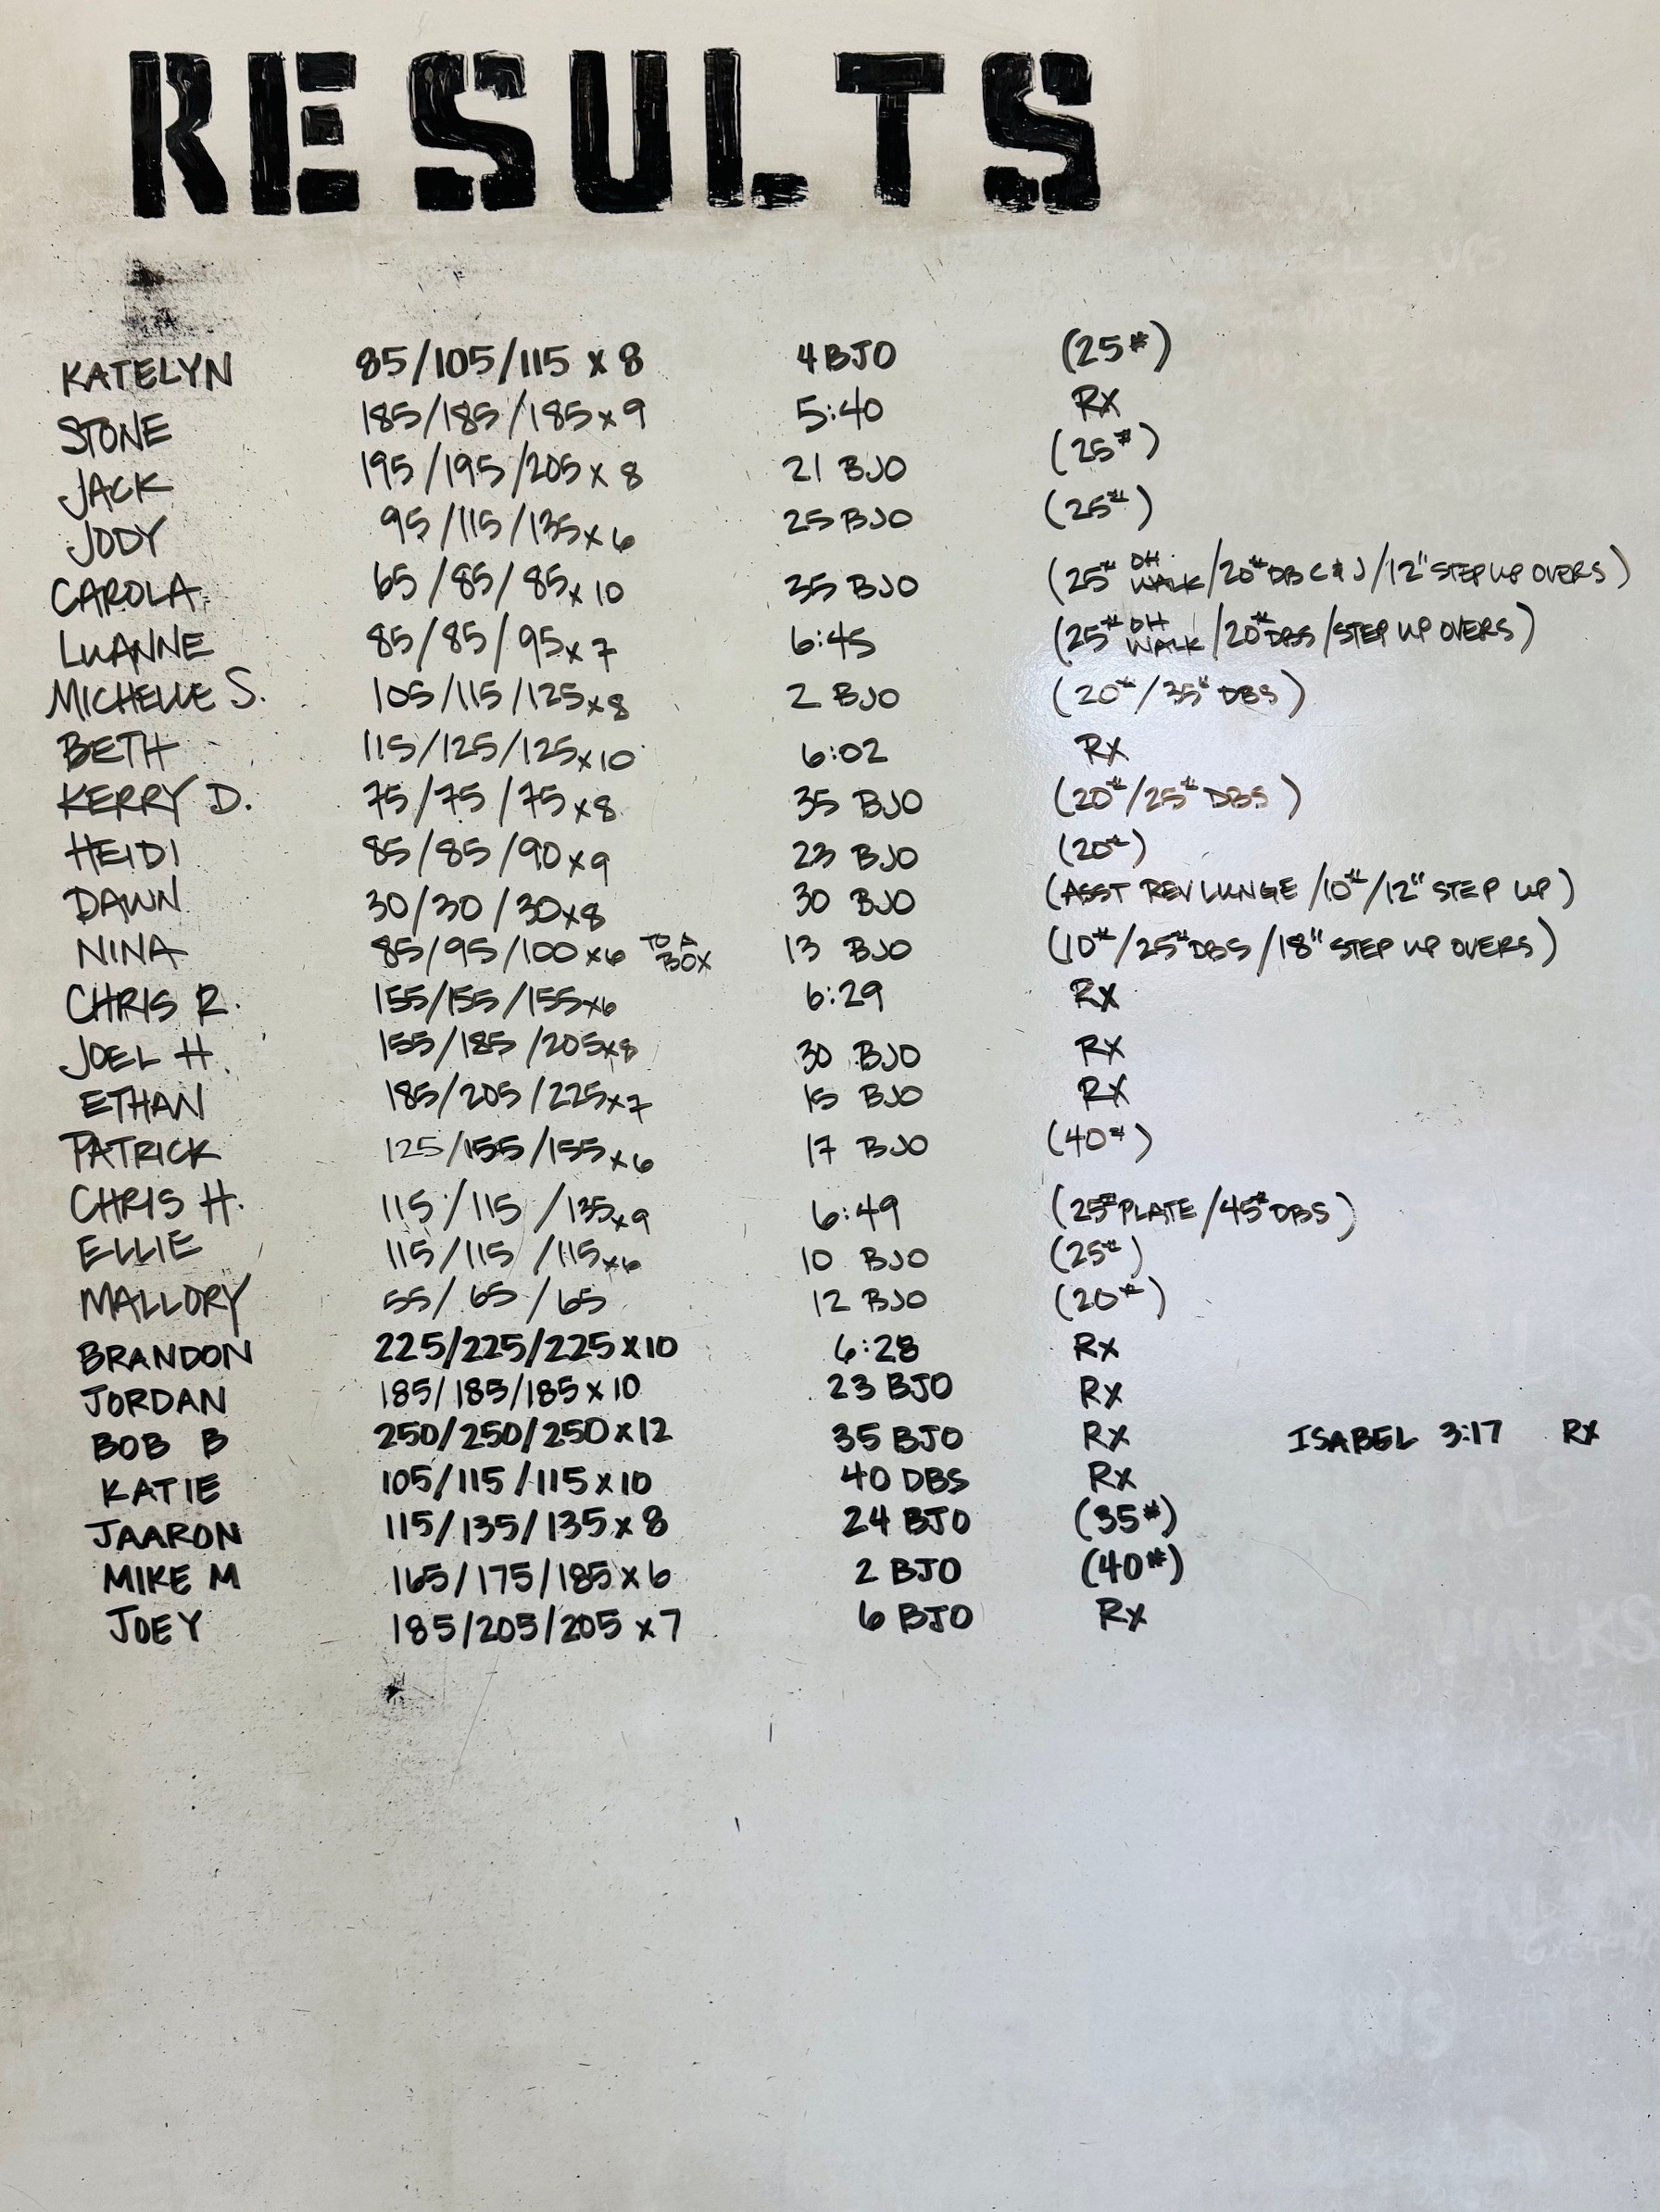 RESULTS
KATELYN 85/105/115 x 8 4 BJO (25#)
STONE 185/185/185 x 9 5:40 RX
JACK 195/195/205 x 8 21 BJO (25#)
JODY 95/115/135 x 6 25 BJO (25#)
CAROLA 65/85/85 x 10 35 BJO (25# OH WALK/20# DB C&J/12" STEP UP OVERS)
LUANNE 85/85/95 x 7 6:45 (25# OH WALK/20# DBS/STEP UP OVERS)
MICHELLE S. 105/115/125 x 8 2 BJO (20#/35# DBS)
BETH 115/125/125 x 10 6:02 RX
KERRY D. 75/75/75 x 8 35 BJO (20#/25# DBS)
HEIDI 85/85/90 x 9 23 BJO (20#)
DAWN 30/30/30 x 8 30 BJO (ASST REV LUNGE/10#/12" STEP UP)
NINA 85/95/100 x 6 TO A BOX 13 BJO (10#/25# DBS/18" STEP UP OVERS)
CHRIS R. 155/155/155 x 6 6:29 RX
JOEL H. 155/185/205 x 8 30 BJO RX
ETHAN 185/205/225 x 7 15 BJO RX
PATRICK 125/155/155 x 6 17 BJO (40#)
CHRIS H. 115/115/135 x 9 6:49 (25# PLATE/45# DBS)
ELLIE 115/115/115 x 6 10 BJO (25#)
MALLORY 55/65/65 12 BJO (20#)
BRANDON 225/225/225 x 10 6:28 RX
JORDAN 185/185/185 x 10 23 BJO RX
BOB B 250/250/250 x 12 35 BJO RX ISABEL 3:17 RX
KATIE 105/115/115 x 10 40 DBS RX
JAARON 115/135/135 x 8 24 BJO (35#)
MIKE M 165/175/185 x 6 2 BJO (40#)
JOEY 185/205/205 x 7 6 BJO RX